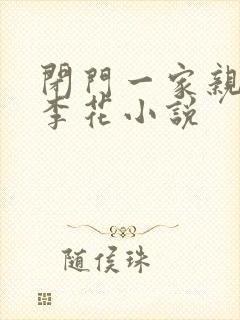 閉門一家親
李花小說
随侯珠